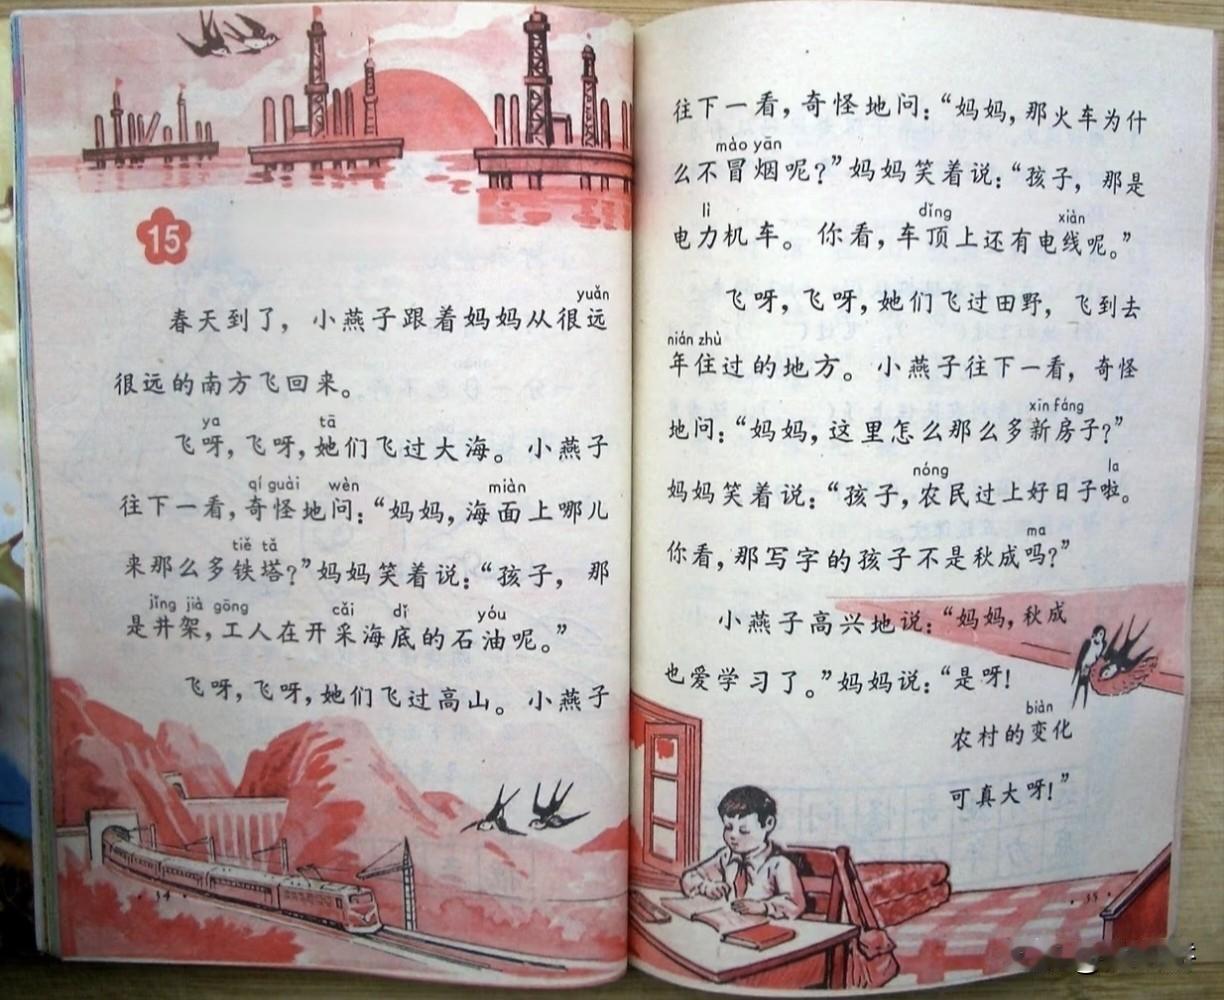 15
yuǎn
春天到了，小燕子跟着妈妈从很远
很远的南方飞回来。
ya tā
飞呀，飞呀，她们飞过大海。小燕子
qí guài wèn miàn
往下一看，奇怪地问：“妈妈，海面上哪儿
tiě tǎ
来那么多铁塔？”妈妈笑着说：“孩子，那
jǐng jià gōng cǎi dǐ yóu
是井架，工人在开采海底的石油呢。”
飞呀，飞呀，她们飞过高山。小燕子
34
往下一看，奇怪地问：“妈妈，那火车为什
mào yān
么不冒烟呢？”妈妈笑着说：“孩子，那是
lì dǐng xiàn
电力机车。你看，车顶上还有电线呢。”
飞呀，飞呀，她们飞过田野，飞到去
nián zhù
年住过的地方。小燕子往下一看，奇怪
xīn fáng
地问：“妈妈，这里怎么那么多新房子？”
nóng la
妈妈笑着说：“孩子，农民过上好日子啦。
ma
你看，那写字的孩子不是秋成吗？”
小燕子高兴地说：“妈妈，秋成
也爱学习了。”妈妈说：“是呀！
biàn
农村的变化
可真大呀！”
35